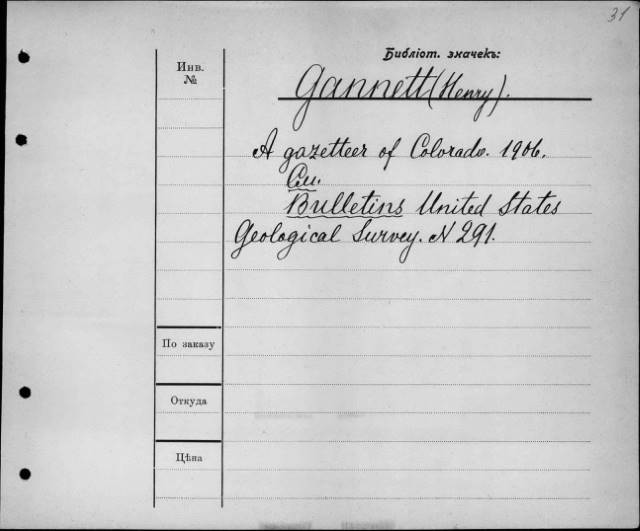 31
Библіот. значекъ:
Инв.
№
Gannett (Henry).
A gazetteer of Colorado. 1906.
См.
Bulletins United States
Geological Survey. N 291.
По заказу
Откуда
Цѣна